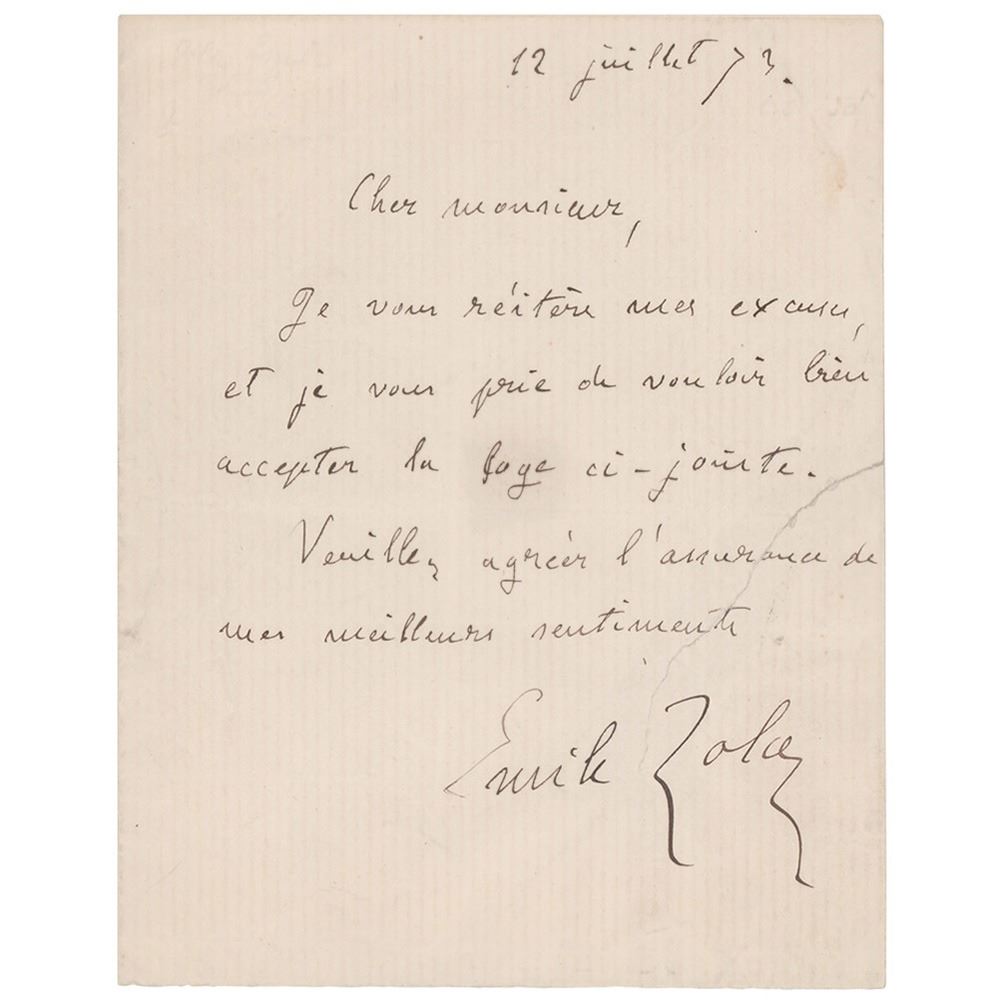 12 juillet 73.
Cher monsieur,
Je vous réitère mes excuses,
et je vous prie de vouloir bien
accepter la loge ci-jointe.
Veuillez agréer l'assurance de
mes meilleurs sentiments
Emile Zola